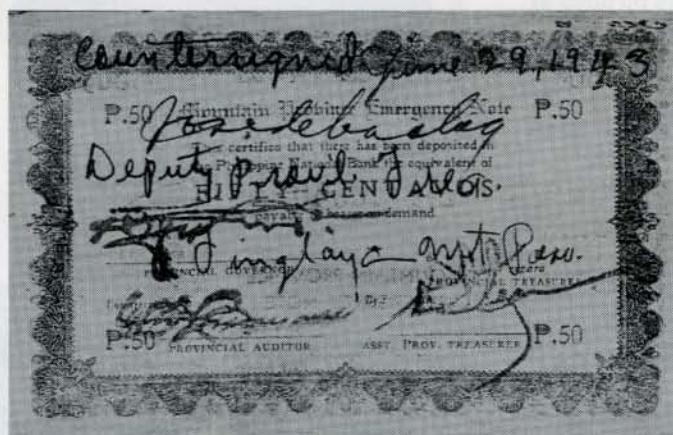 Countersigned June 29, 1943
P.50 Mountain Province Emergency Note P.50
This certifies that there has been deposited in
the Philippine National Bank the equivalent of
Deputy Provl. Treas.
FIFTY CENTAVOS
payable to bearer on demand
Tinglayan Mt. Prov.
PROVINCIAL GOVERNOR
PROVINCIAL TREASURER
By:
P.50 PROVINCIAL AUDITOR ASST. PROV. TREASURER P.50